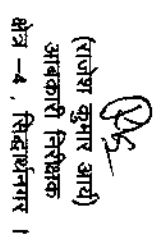 (राजेश कुमार आर्य)
आबकारी निरीक्षक
क्षेत्र -4, सिद्धार्थनगर ।